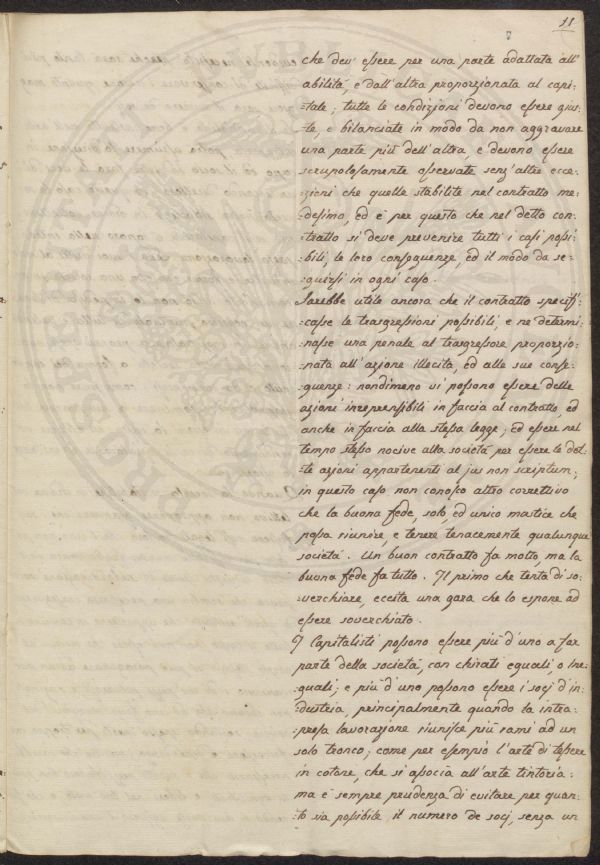 11
che dev' essere per una parte adattata all'
abilità, e dall'altra proporzionata al capi:
:tale; tutte le condizioni devono essere gius:
:te, e bilanciate in modo da non aggravare
una parte più dell'altra, e devono essere
scrupolosamente osservate senz'altre ecce:
:zioni che quelle stabilite nel contratto me:
:desimo, ed è per questo che nel detto con:
:tratto si deve prevenire tutti i casi possi:
:bili, le loro conseguenze, ed il modo da se:
:guirsi in ogni caso.
Sarebbe utile ancora che il contratto specifi:
:casse le trasgressioni possibili, e ne determi:
:nasse una penale al trasgressore proporzio:
:nata all'azione illecita, ed alle sue conse:
:guenze: nondimeno vi possono essere delle
azioni irreprensibili in faccia al contratto, ed
anche in faccia alla stessa legge; ed essere nel
tempo stesso nocive alla società per essere le det:
:te azioni appartenenti al jus non scriptum;
in questo caso non conosco altro correttivo
che la buona fede, solo, ed unico mastice che
possa riunire, e tenere tenacemente qualunque
società. Un buon contratto fa molto, ma la
buona fede fa tutto. Il primo che tenta di so:
:verchiare, eccita una gara che lo espone ad
essere soverchiato.
I Capitalisti possono essere più d'uno a far
parte della società, con chirati eguali, o ine:
:guali; e più d'uno possono essere i socj d'in:
:dustria, principalmente quando la intra:
:presa lavorazione riunisce più rami ad un
solo tronco; come per esempio l'arte di tessere
in cotone, che si associa all'arte tintoria:
ma è sempre prudenza di evitare per quan:
:to sia possibile il numero de socj, senza un